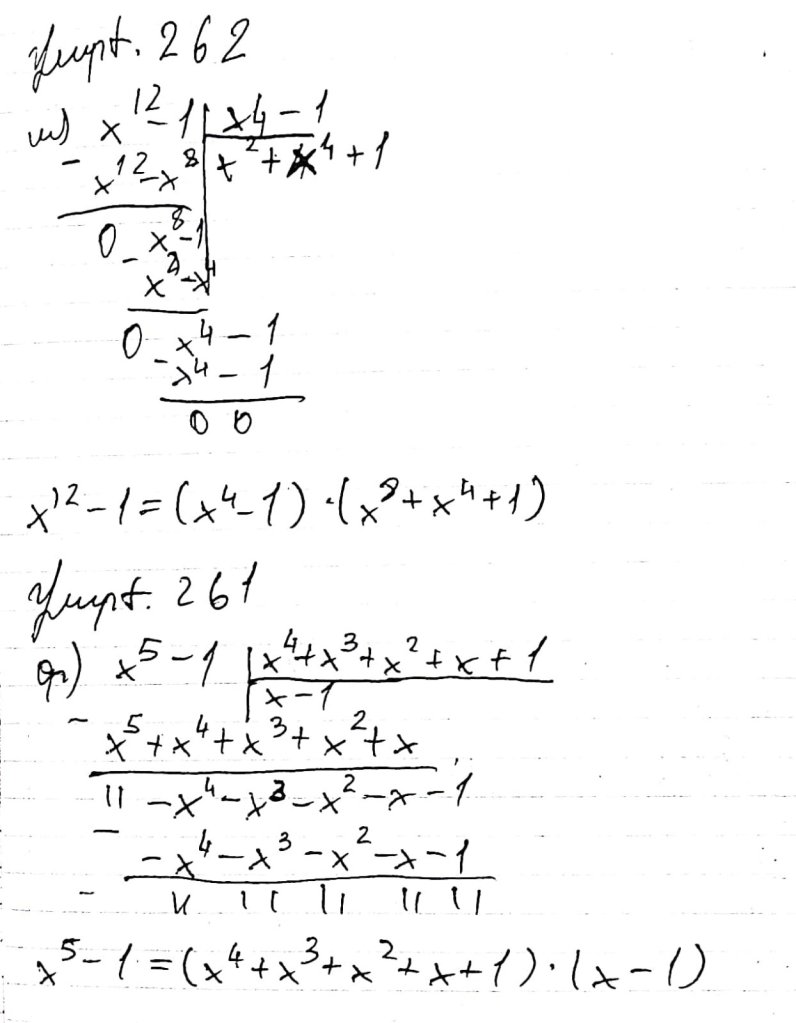 Վարժ. 262
ա) x¹² - 1 | x⁴ - 1
- x¹² - x⁸ | x² + x⁴ + 1
0 - x⁸ - 1
x⁸ - x⁴
0 - x⁴ - 1
x⁴ - 1
0 0
x¹² - 1 = (x⁴ - 1) · (x⁸ + x⁴ + 1)
Վարժ. 261
գ) x⁵ - 1 | x⁴ + x³ + x² + x + 1
- | x - 1
x⁵ + x⁴ + x³ + x² + x
|| - x⁴ - x³ - x² - x - 1
- - x⁴ - x³ - x² - x - 1
- || || || || ||
x⁵ - 1 = (x⁴ + x³ + x² + x + 1) · (x - 1)